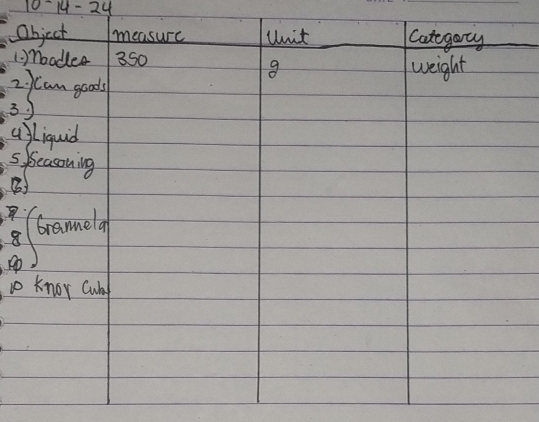 10-14-24
Object measure Unit Category
1.) Noodles 350 g weight
2.) Can goods
3.)
4.) Liquid
5.) Seasoning
6.)
7.
8 Grannela
9
10 Knor Cube